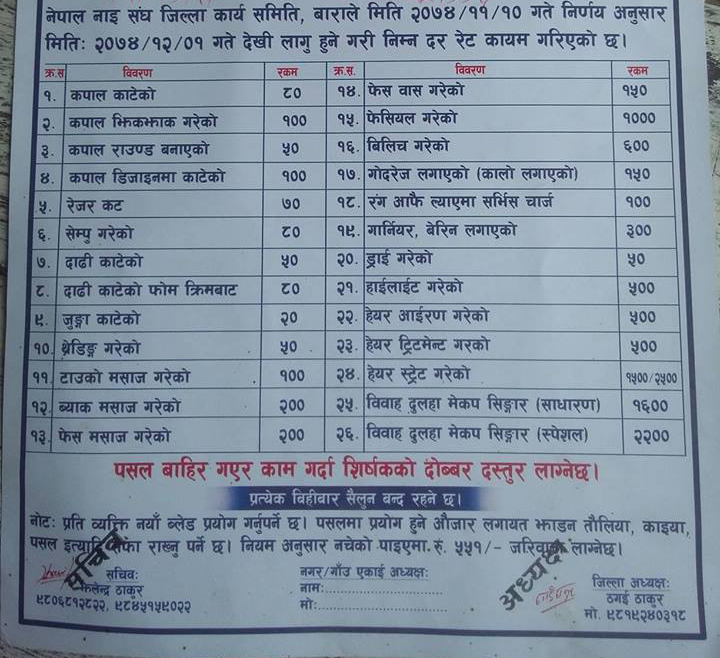 नेपाल नाइ संघ जिल्ला कार्य समिति, बाराले मिति २०७४/११/१० गते निर्णय अनुसार
मितिः २०७४/१२/०१ गते देखी लागु हुने गरी निम्न दर रेट कायम गरिएको छ।
क्र.स विवरण रकम क्र.स. विवरण रकम
१. कपाल काटेको ८० १४. फेस वास गरेको १५०
२. कपाल झिकझाक गरेको १०० १५. फेसियल गरेको १०००
३. कपाल राउण्ड बनाएको ५० १६. बिलिच गरेको ६००
४. कपाल डिजाइनमा काटेको १०० १७. गोदरेज लगाएको (कालो लगाएको) १५०
५. रेजर कट ७० १८. रंग आफै ल्याएमा सर्भिस चार्ज १००
६. सेम्पु गरेको ८० १९. गार्नियर, बेरिन लगाएको ३००
७. दाढी काटेको ५० २०. ड्राई गरेको ५०
८. दाढी काटेको फोम क्रिमबाट ८० २१. हाईलाईट गरेको ५००
९. जुङ्गा काटेको २० २२. हेयर आईरण गरेको ५००
१०. थ्रेडिङ्ग गरेको ५० २३. हेयर ट्रिटमेन्ट गरको ५००
११. टाउको मसाज गरेको १०० २४. हेयर स्ट्रेट गरेको १५००/२५००
१२. ब्याक मसाज गरेको २०० २५. विवाह दुलहा मेकप सिङ्गार (साधारण) १६००
१३. फेस मसाज गरेको २०० २६. विवाह दुलहा मेकप सिङ्गार (स्पेशल) २२००
पसल बाहिर गएर काम गर्दा शिर्षकको दोब्बर दस्तुर लाग्नेछ।
प्रत्येक बिहीबार सैलुन बन्द रहने छ।
नोटः प्रति व्यक्ति नयाँ ब्लेड प्रयोग गर्नुपर्ने छ। पसलमा प्रयोग हुने औजार लगायत झाडन तौलिया, काइया,
पसल इत्यादि सफा राख्नु पर्ने छ। नियम अनुसार नचेको पाइएमा रु. ५५१/- जरिवाना लाग्नेछ।
सचिव
अध्यक्ष
सचिवः
ठाकुर
९८०६८१२८२२, ९८४५१५९०२२
नगर/गाँउ एकाई अध्यक्षः
नामः
मोः
जिल्ला अध्यक्षः
ठगई ठाकुर
मो. ९८१९२४०३१८